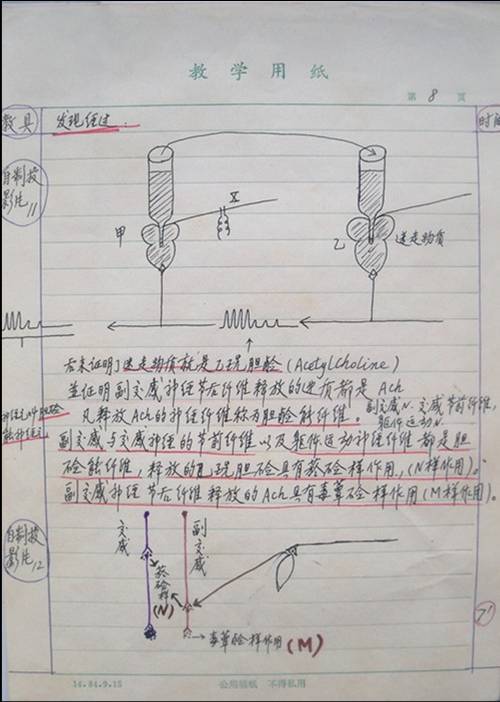 教学用纸
第 8 页
教具
发现经过:
时间
自制投
影片11
X
甲
乙
迷走物质
后来证明了迷走物质就是乙酰胆硷(Acetylcholine)
并证明副交感神经节后纤维释放的递质都是 Ach
凡释放Ach的神经纤维称为胆硷能纤维。
副交感N. 交感节前纤维,
躯体运动N.
副交感与交感神经的节前纤维以及躯体运动神经纤维都是胆
硷能纤维,释放的乙酰胆硷具有菸硷样作用,(N样作用)。
副交感神经节后纤维释放的Ach具有毒蕈硷样作用(M样作用)。
自制投
影片12
交感
副交感
菸硷样
(N)
毒蕈硷样作用(M)
7'
14.84.9.15
公用稿纸 不得私用